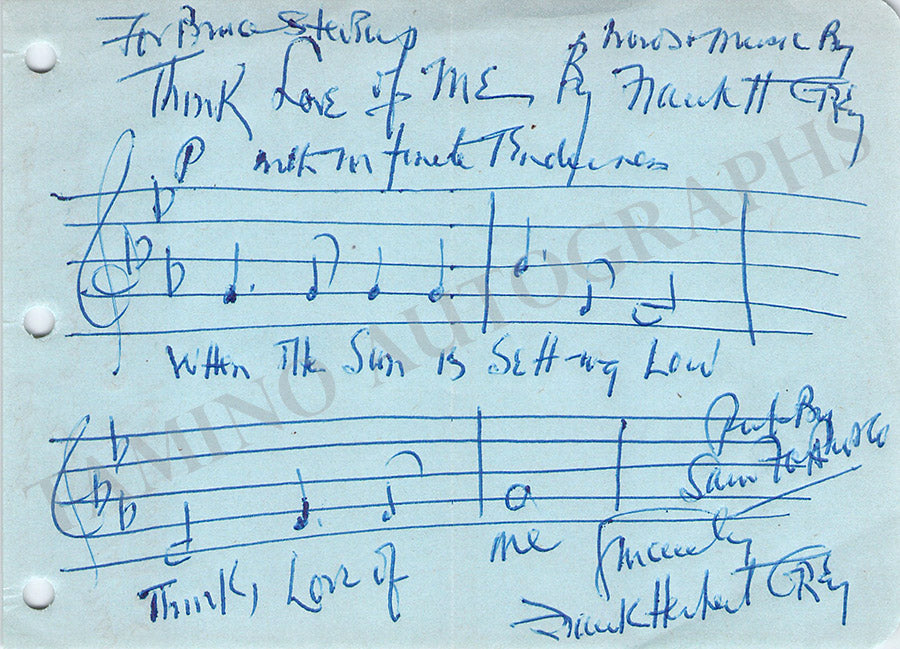 For Bruce
Words + Music By
Think Love of ME, By Frank H GREy
P with infinite Tenderness
When The Sun is Sett-ing Low
Think, Love of me
Pub. By
Sam Fox
Sincerely
Frank Herbert GREy
TAMINO AUTOGRAPHS